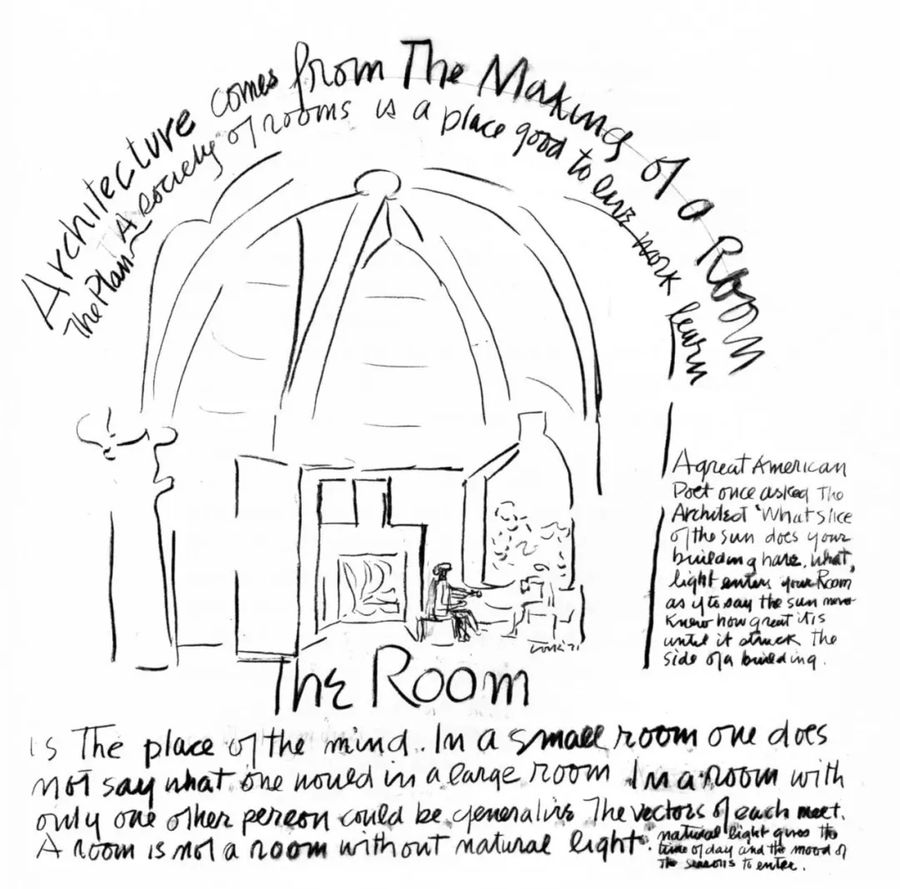 Architecture comes from The Making of a Room
The Plan A society of rooms is a place good to live work learn
A great American
Poet once asked The
Architect 'What slice
of the sun does your
building have. What
light enters your Room
as if to say the sun never
knew how great it is
until it struck the
side of a building.
The Room
is The place of the mind. In a small room one does
not say what one would in a large room In a room with
only one other person could be generative The vectors of each meet.
A room is not a room without natural light.
natural light gives the
time of day and the mood of
The seasons to enter.